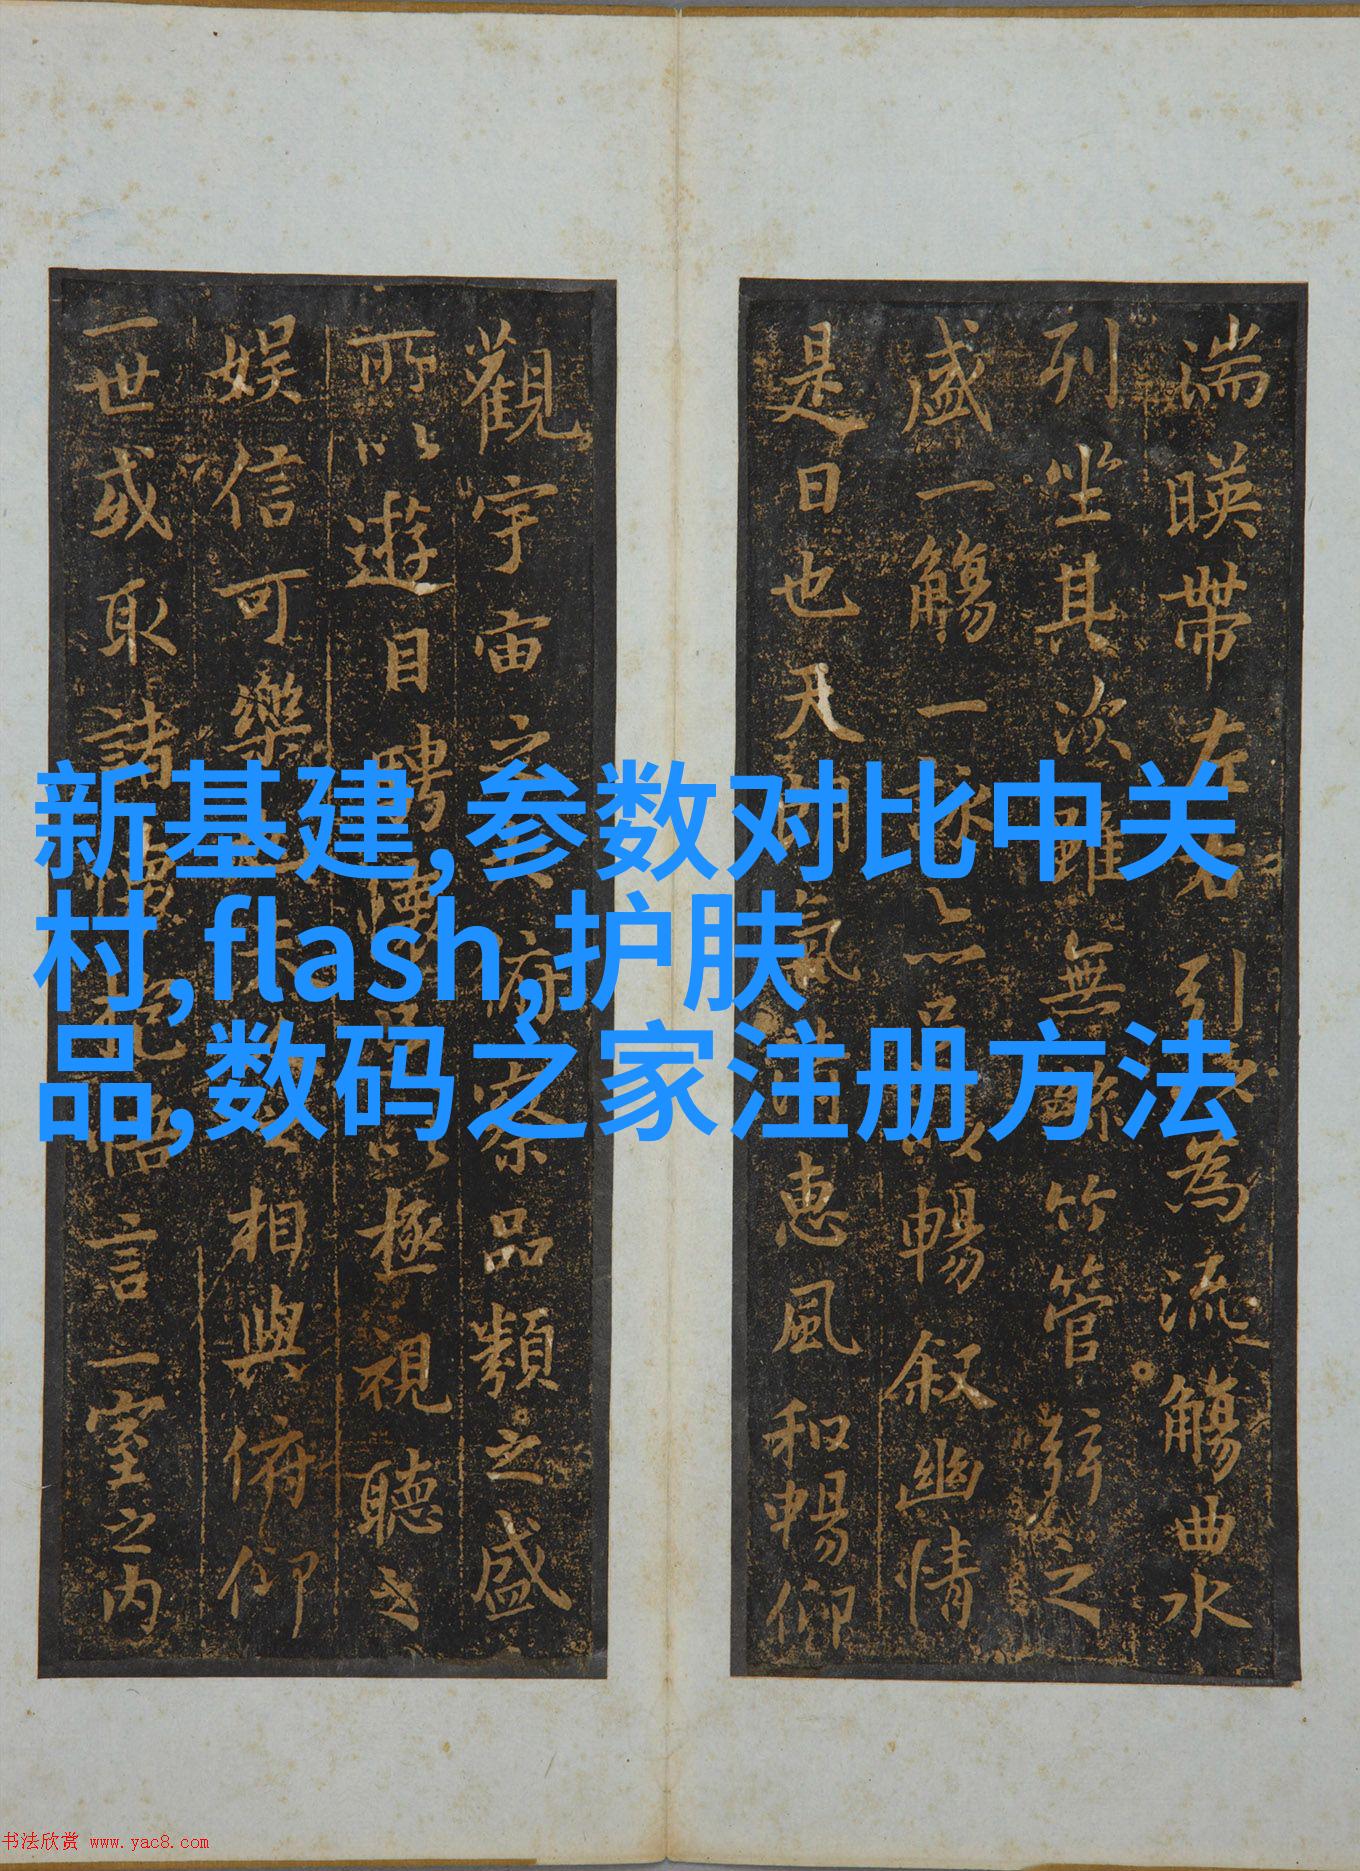 湍暎帶左右引以為流觴曲水
列坐其次雖無絲竹管弦之
盛一觴一詠亦足以暢叙幽情
是日也天朗氣清惠風和暢仰
觀宇宙之大俯察品類之盛
所以遊目騁懷足以極視聽之
娱信可樂也夫人之相與俯仰
一世或取諸懷抱悟言一室之内
新基建,参数对比中关
村,flash,护肤
品,数码之家注册方法
书法欣赏 www.yac8.com